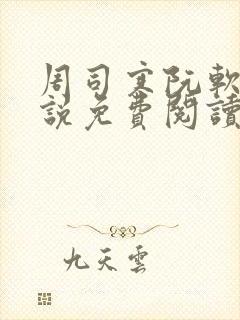 周司寒阮軟
說免費閱讀
九天雲